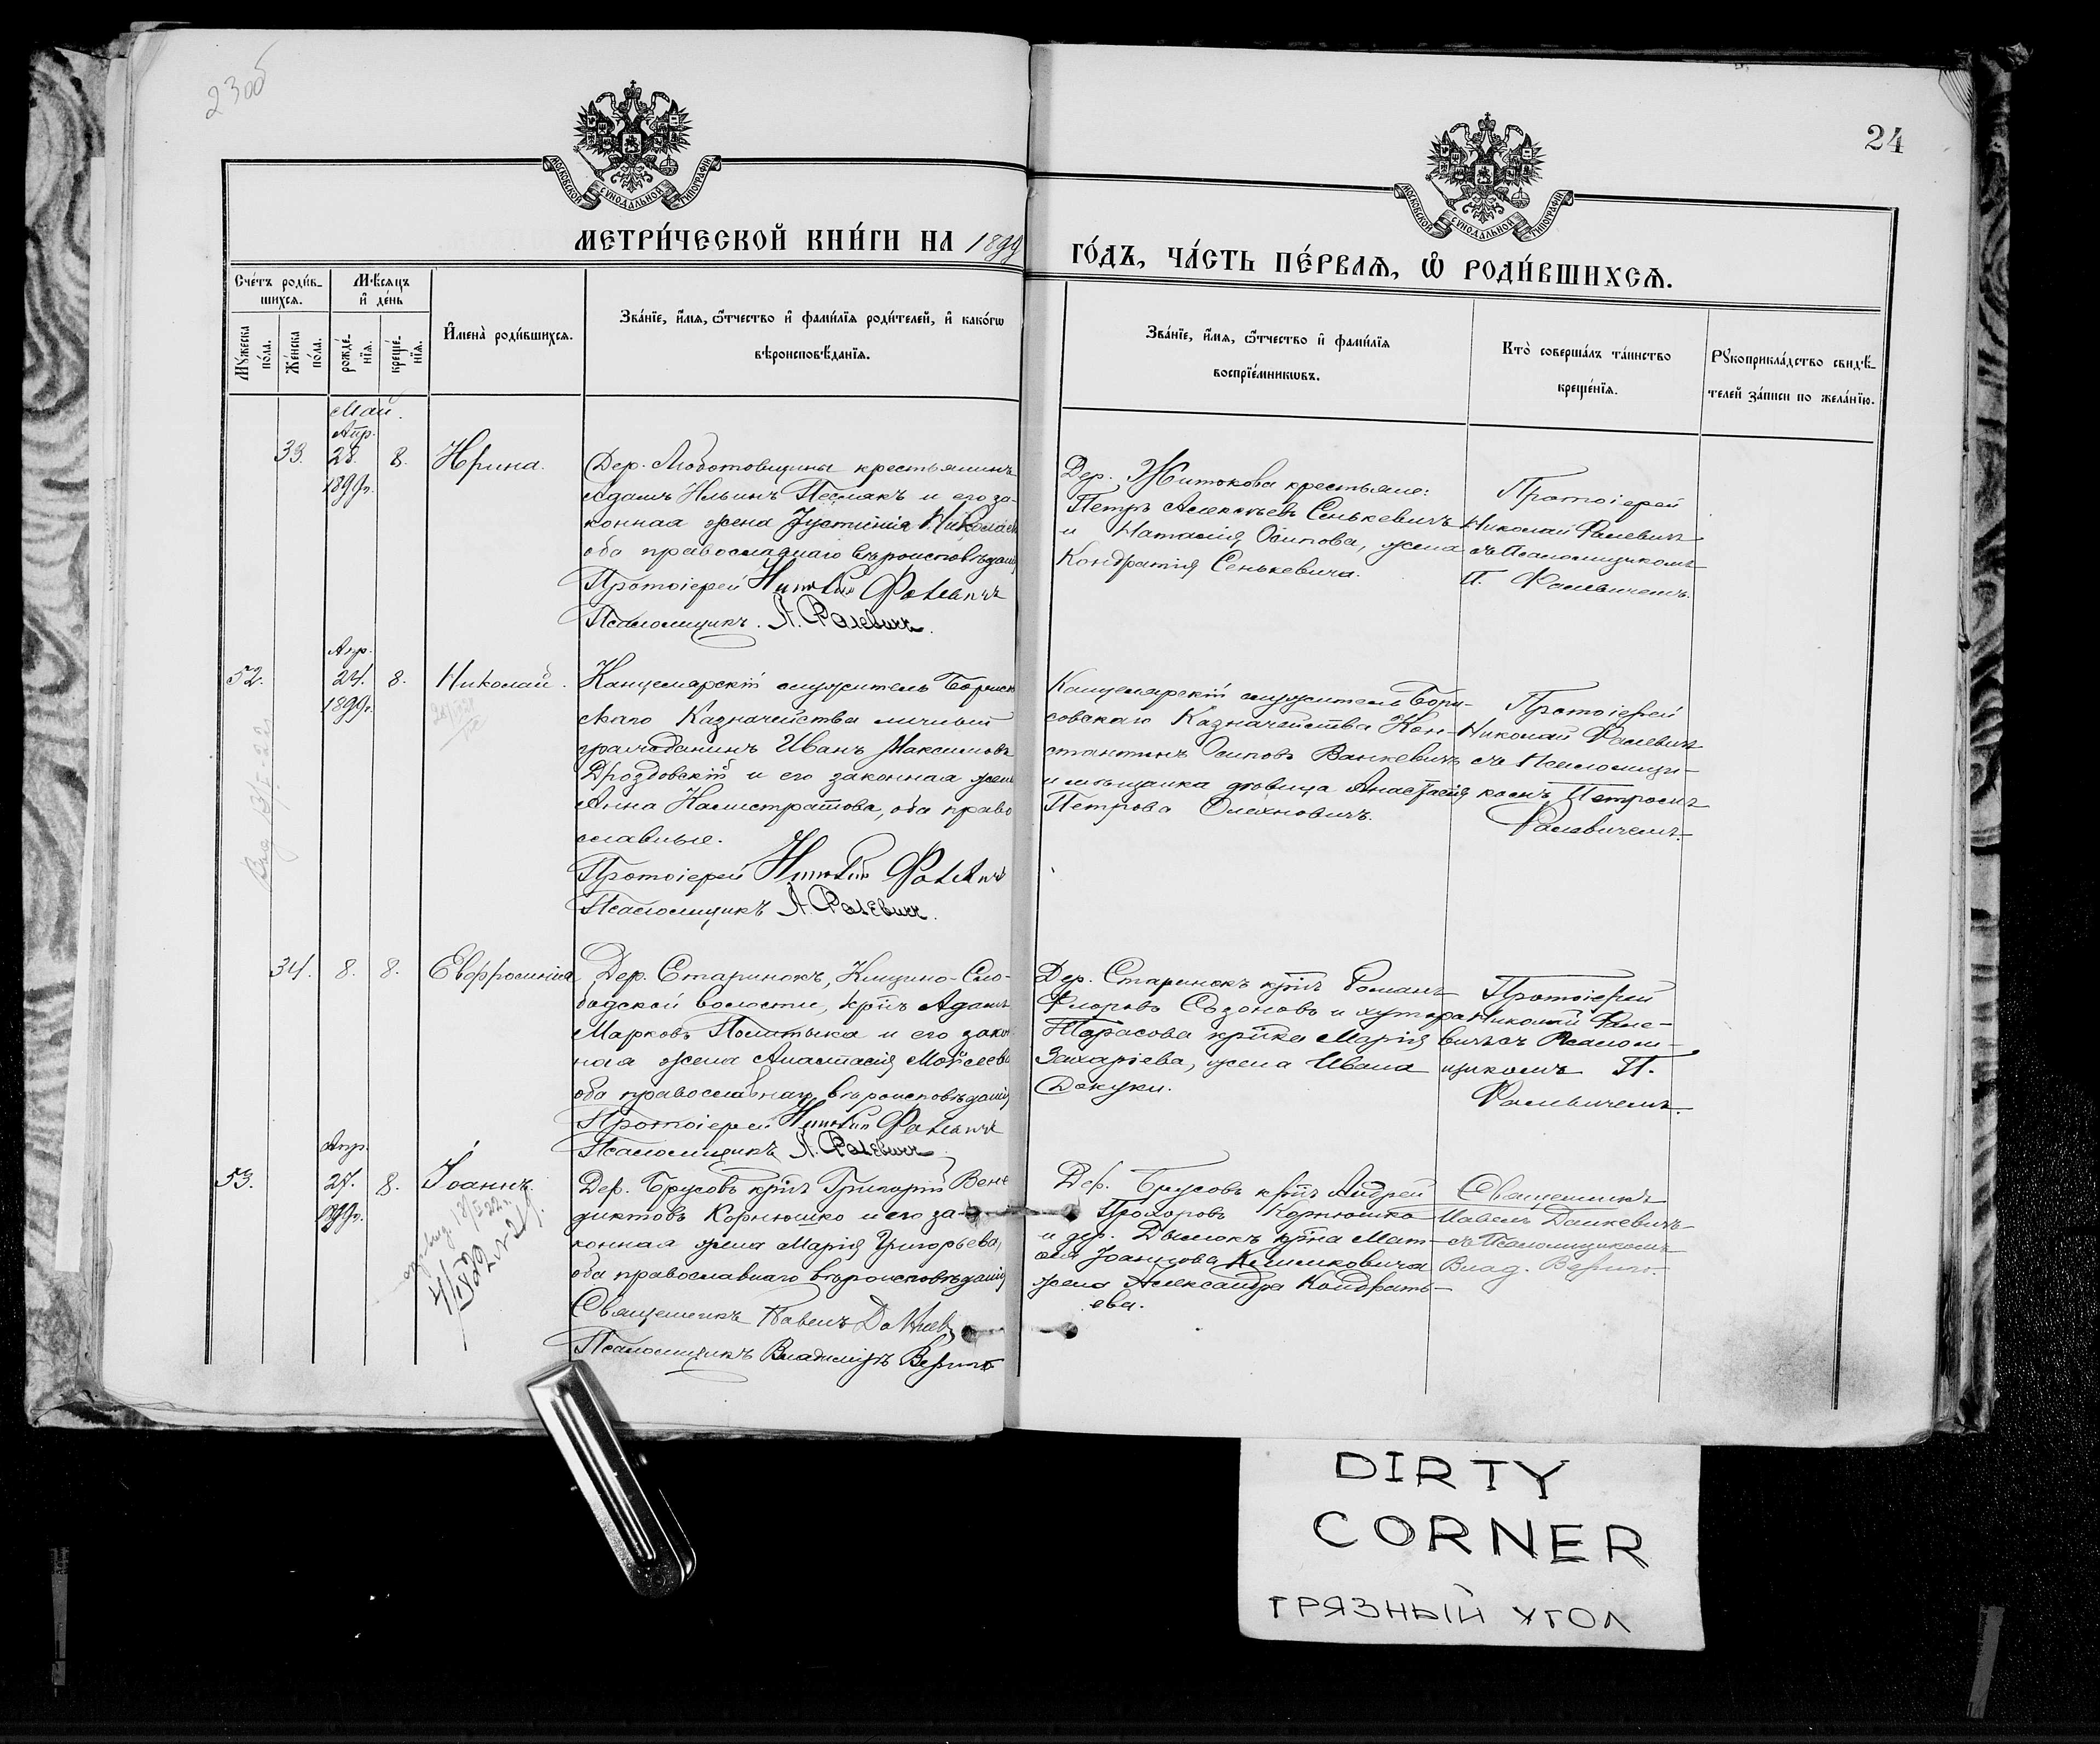 23об
24
МОСКОВСКОЙ СѴНОДАЛЬНОЙ ТИПОГРАФІИ
МОСКОВСКОЙ СѴНОДАЛЬНОЙ ТИПОГРАФІИ
МЕТРИ́ЧЕСКОЙ КНИ́ГИ НА 1899
ГО́ДЪ, ЧА́СТЬ ПЕ́РВАѦ, Ѡ РОДИ́ВШИХСѦ.
Сче́тъ роди́в-
шихсѧ.
Мѣ́сѧцъ
и҆ де́нь
Мꙋ́жеска
по́ла.
Же́нска
по́ла.
рожде́-
нїѧ.
креще́-
нїѧ.
И҆мена̀ роди́вшихсѧ.
Зва́нїе, и҆́мѧ, ѻ҆́тчество и҆ фами́лїѧ роди́телей, и҆ како́гѡ
вѣроисповѣ́данїѧ.
Зва́нїе, и҆́мѧ, ѻ҆́тчество и҆ фами́лїѧ
воспрїе́мникѡвъ.
Кто̀ соверша́лъ та́инство
креще́нїѧ.
Рꙋкоприкла́дство свидѣ́-
телей за́писи по жела́нїю.
Май.
Апр.
33. 28. 8. Ирина.
1899г.
Дер. Любатовщины крестьянинъ
Адамъ Ильинъ Песлякъ и его за-
конная жена Іустинія Николаев
оба православнаго вѣроисповѣданія
Протоіерей Николай Фалевичъ
Псаломщикъ. П. Фалевичъ.
Дер. Житькова крестьяне:
Петръ Алексѣевъ Сенькевичъ
и Наталія Осипова, жена
Кондратія Сенькевича.
Протоіерей
Николай Фалевичъ
съ Псаломщикомъ
П. Фалевичемъ.
Апр.
52. 24. 8. Николай.
1899г.
Канцелярскій служитель Борисов
скаго Казначейства личный
гражданинъ Иванъ Максимовъ
Дроздовскій и его законная жена
Анна Калистратова, оба право
славные.
Протоіерей Николай Фалевичъ
Псаломщикъ П. Фалевичъ.
Канцелярскій служитель Бори-
совскаго Казначейства Кон-
стантинъ Осиповъ Ванкевичъ
и мѣщанка дѣвица Анастасія
Петрова Олехновичъ.
Протоіерей
Николай Фалевичъ
съ Псаломщи-
комъ Петромъ
Фалевичемъ.
34. 8. 8. Евфросинія
Дер. Старинокъ, Клицино-Сло-
бодской волости, кр͠нъ Адамъ
Марковъ и его закон
ная жена Анастасія Моисеева
оба православнаго вѣроисповѣданія
Протоіерей Николай Фалевичъ
Псаломщикъ П. Фалевичъ
Дер. Старинокъ кр͠нъ Романъ
Флоровъ Сазоновъ и хутора
Тарасова кр͠нка Марія
Захаріева, жена Ивана
Докуки.
Протоіерей
Николай Фале-
вичъ съ Псалом-
щикомъ П.
Фалевичемъ.
Апр.
53. 27. 8. Іоаннъ.
1899г.
Дер. Брусовъ кр͠нъ Григорій Вене
диктовъ Корнюшко и его за-
конная жена Марія Григорьева,
оба православнаго вѣроисповѣданія
Священникъ Павелъ Данкев
Псаломщикъ Владиміръ Вериго
Дер. Брусовъ кр͠нъ Андрей
Прохоровъ Корнюшко
и дер. Дымокъ кр͠нка Мат-
рона Іоаннова Климковича
жена Александра Кондрать-
ева.
Священникъ
Павелъ Данкевичъ
съ Псаломщикомъ
Влад. Вериго.
DIRTY
CORNER
ГРЯЗНЫЙ УГОЛ